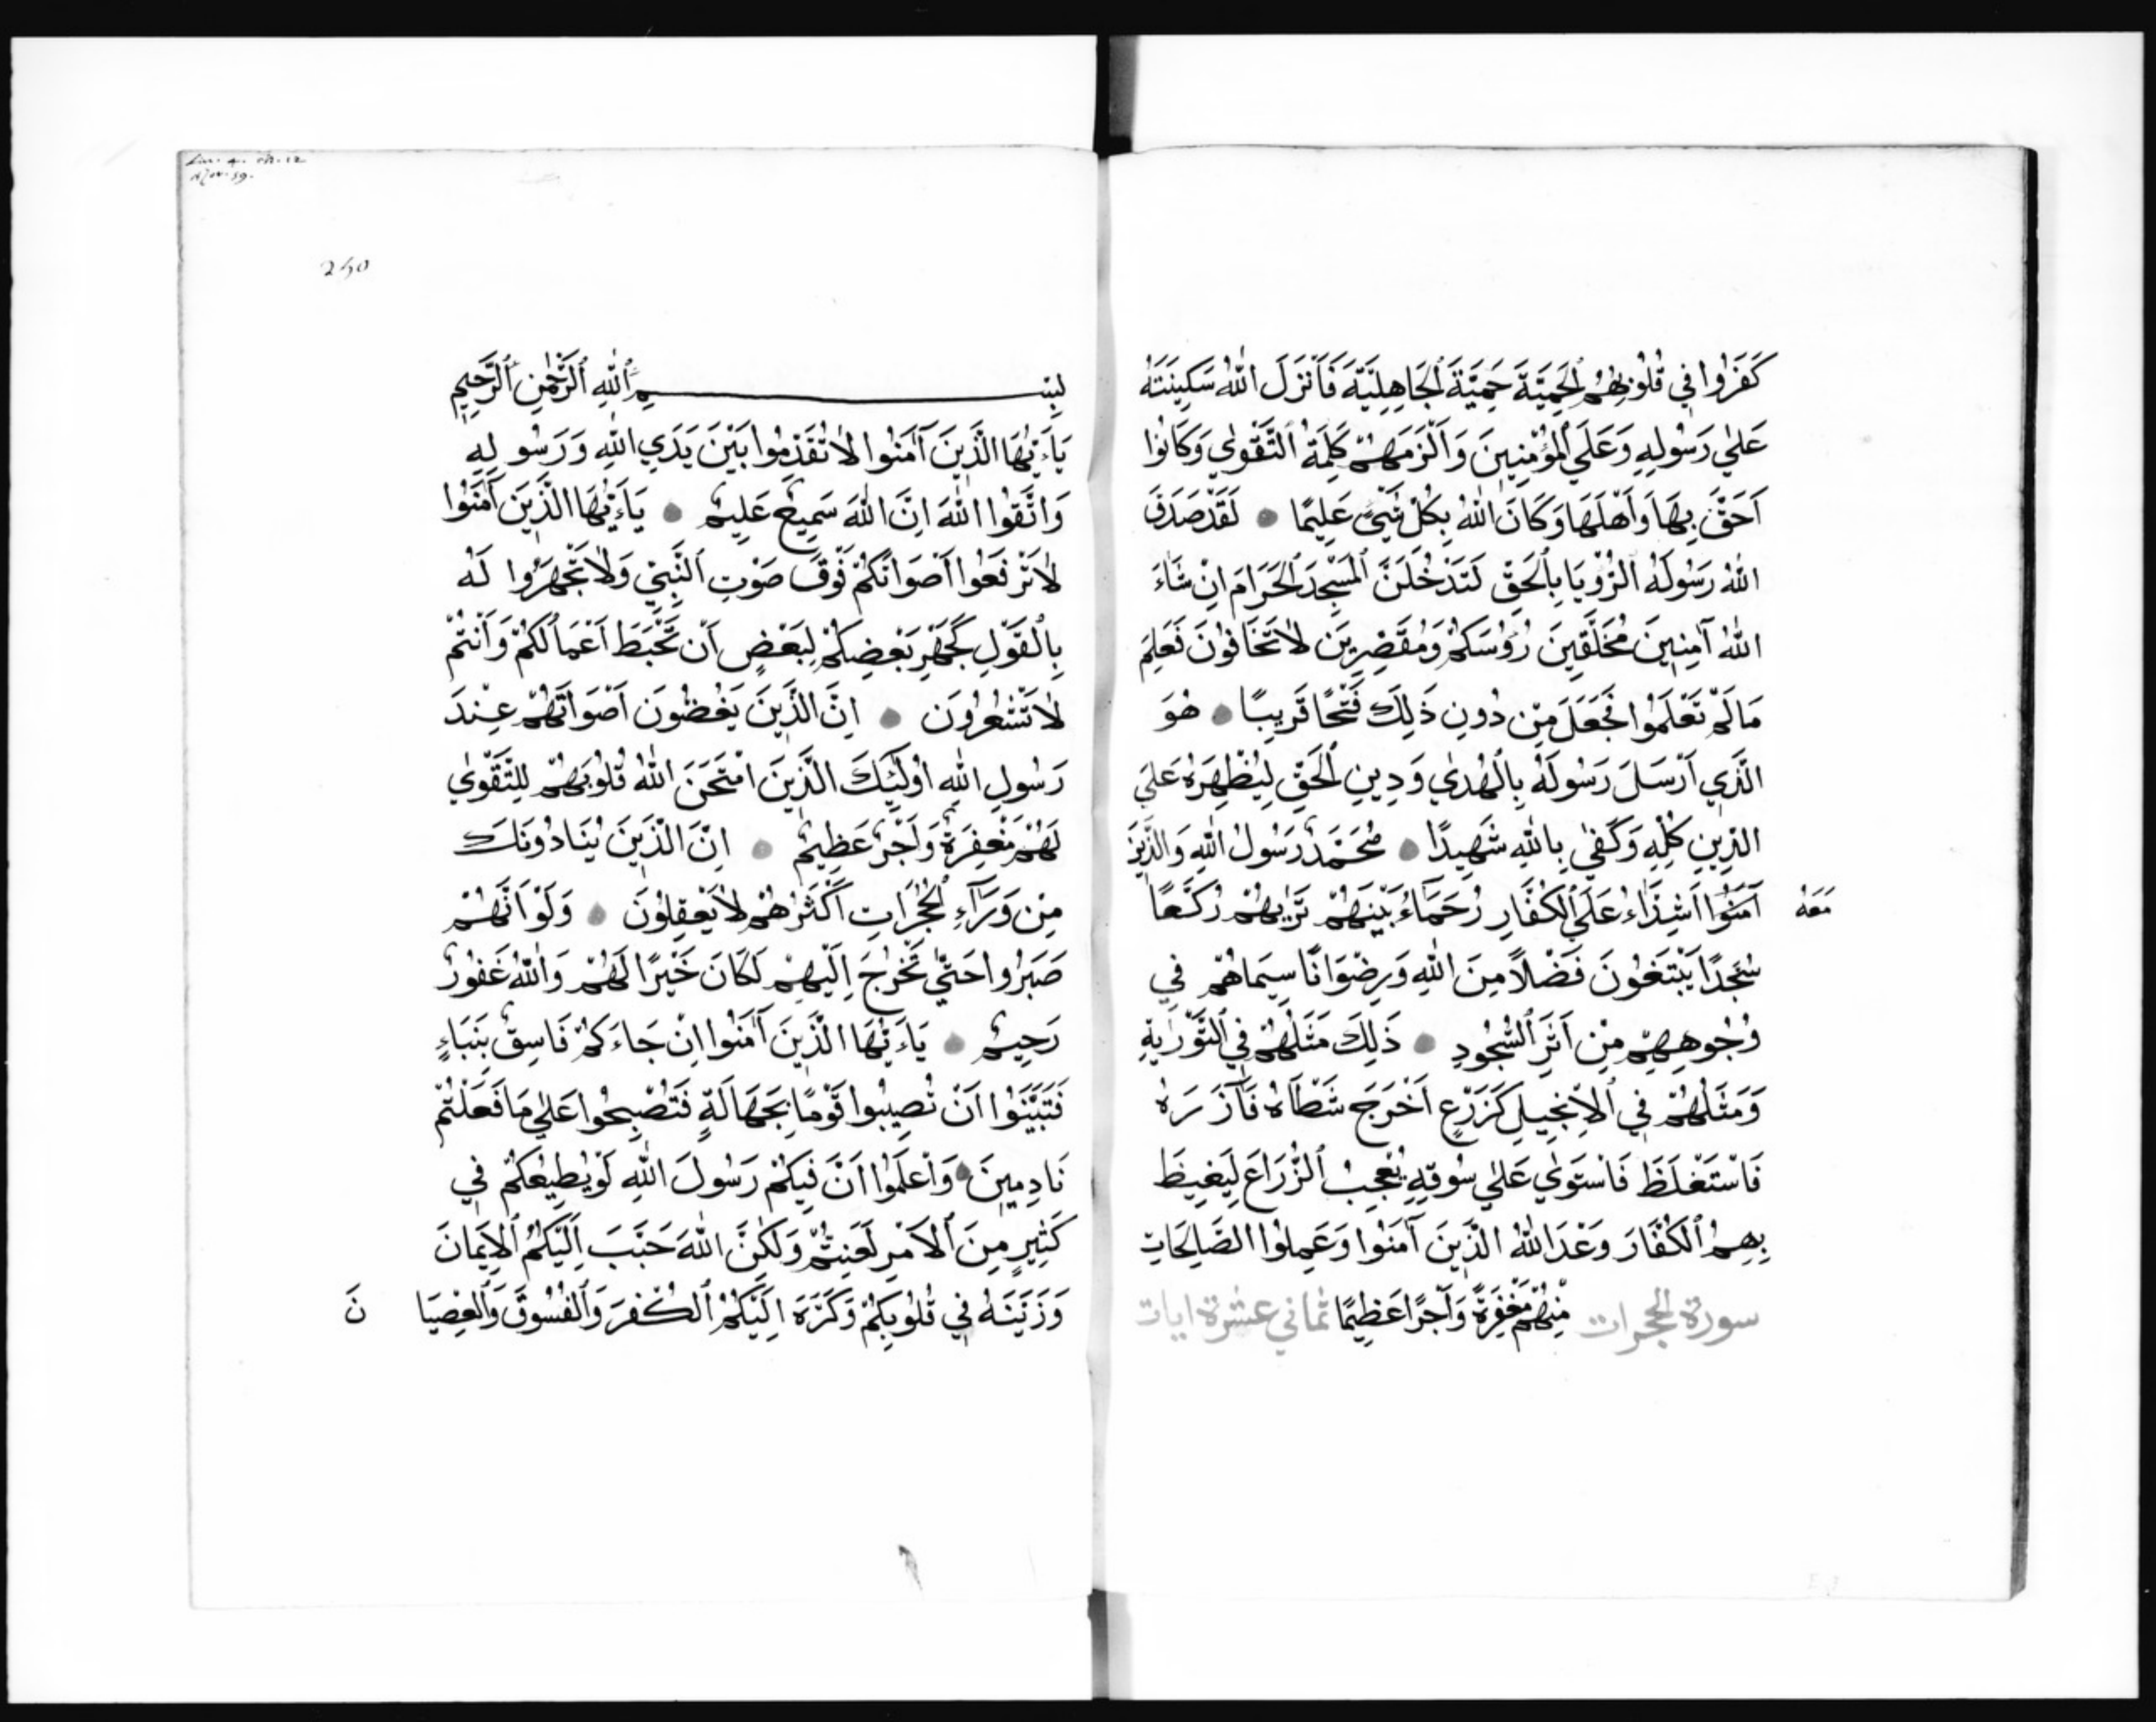 كَفَرُوا فِي قُلُوبِهِمُ ٱلْحَمِيَّةَ حَمِيَّةَ ٱلْجَاهِلِيَّةِ فَاَنْزَلَ اللّٰهُ سَكِينَتَهُ
عَلٰي رَسُولِهِ وَعَلَي ٱلْمُؤْمِنِينَ وَاَلْزَمَهُمْ كَلِمَةَ ٱلتَّقْوٰي وَكَانُوا
اَحَقَّ بِهَا وَاَهْلَهَا وَكَانَ اللّٰهُ بِكُلِّ شَيْءٍ عَلِيمًا ● لَقَدْ صَدَقَ
اللّٰهُ رَسُولَهُ ٱلرُّوْيَا بِٱلْحَقِّ لَتَدْخُلَنَّ ٱلْمَسْجِدَ ٱلْحَرَامَ اِنْ شَاءَ
اللّٰهُ آمِنِينَ مُحَلِّقِينَ رُؤُسَكُمْ وَمُقَصِّرِينَ لَا تَخَافُونَ فَعَلِمَ
مَا لَمْ تَعْلَمُوا فَجَعَلَ مِنْ دُونِ ذَلِكَ فَتْحًا قَرِيبًا ● هُوَ
الَّذِي اَرْسَلَ رَسُولَهُ بِالْهُدٰي وَدِينِ ٱلْحَقِّ لِيُظْهِرَهُ عَلَي
الدِّينِ كُلِّهِ وَكَفٰي بِاللّٰهِ شَهِيدًا ● مُحَمَّدٌ رَسُولُ اللّٰهِ وَالَّذِينَ
مَعَهُ
آمَنُوا اَشِدَّاءُ عَلَي ٱلْكُفَّارِ رُحَمَآءُ بَيْنَهُمْ تَرٰيهُمْ رُكَّعًا
سُجَّدًا يَبْتَغُونَ فَضْلًا مِنَ اللّٰهِ وَرِضْوَانًا سِيمَاهُمْ فِي
وُجُوهِهِمْ مِنْ اَثَرِ ٱلسُّجُودِ ● ذَلِكَ مَثَلُهُمْ فِي ٱلتَّوْرٰيةِ
وَمَثَلُهُمْ فِي ٱلْاِنْجِيلِ كَزَرْعٍ اَخْرَجَ شَطْاَهُ فَآزَرَهُ
فَاسْتَغْلَظَ فَاسْتَوٰي عَلٰي سُوقِهِ يُعْجِبُ ٱلزُّرَاعَ لِيَغِيظَ
بِهِمُ ٱلْكُفَّارَ وَعَدَ اللّٰهُ الَّذِينَ آمَنُوا وَعَمِلُوا الصَّالِحَاتِ
سورة الحجرات مِنْهُمْ مَغْفِرَةً وَاَجْرًا عَظِيمًا ثماني عشرة ايات
250
بِسْمِ ٱللّٰهِ ٱلرَّحْمٰنِ ٱلرَّحِيمِ
يَاءَيُّهَا الَّذِينَ آمَنُوا لَا تُقَدِّمُوا بَيْنَ يَدَيِ اللّٰهِ وَرَسُولِهِ
وَاتَّقُوا اللّٰهَ اِنَّ اللّٰهَ سَمِيعٌ عَلِيمٌ ● يَاءَيُّهَا الَّذِينَ آمَنُوا
لَا تَرْفَعُوا اَصْوَاتَكُمْ فَوْقَ صَوْتِ ٱلنَّبِيِّ وَلَا تَجْهَرُوا لَهُ
بِٱلْقَوْلِ كَجَهْرِ بَعْضِكُمْ لِبَعْضٍ اَنْ تَحْبَطَ اَعْمَالُكُمْ وَاَنْتُمْ
لَا تَشْعُرُونَ ● اِنَّ الَّذِينَ يَغُضُّونَ اَصْوَاتَهُمْ عِنْدَ
رَسُولِ اللّٰهِ اُولَئِكَ الَّذِينَ امْتَحَنَ اللّٰهُ قُلُوبَهُمْ لِلتَّقْوٰي
لَهُمْ مَغْفِرَةٌ وَاَجْرٌ عَظِيمٌ ● اِنَّ الَّذِينَ يُنَادُونَكَ
مِنْ وَرَآءِ ٱلْحُجُرَاتِ اَكْثَرُهُمْ لَا يَعْقِلُونَ ● وَلَوْ اَنَّهُمْ
صَبَرُوا حَتَّي تَخْرُجَ اِلَيْهِمْ لَكَانَ خَيْرًا لَهُمْ وَاللّٰهُ غَفُورٌ
رَحِيمٌ ● يَاءَيُّهَا الَّذِينَ آمَنُوا اِنْ جَاءَكُمْ فَاسِقٌ بِنَبَاءٍ
فَتَبَيَّنُوا اَنْ تُصِيبُوا قَوْمًا بِجَهَالَةٍ فَتُصْبِحُوا عَلٰي مَا فَعَلْتُمْ
نَادِمِينَ ● وَاعْلَمُوا اَنَّ فِيكُمْ رَسُولَ اللّٰهِ لَوْ يُطِيعُكُمْ فِي
كَثِيرٍ مِنَ ٱلْاَمْرِ لَعَنِتُّمْ وَلَكِنَّ اللّٰهَ حَبَّبَ اِلَيْكُمُ ٱلْاِيمَانَ
وَزَيَّنَهُ فِي قُلُوبِكُمْ وَكَرَّهَ اِلَيْكُمُ ٱلْكُفْرَ وَٱلْفُسُوقَ وَٱلْعِصْيَا نَ